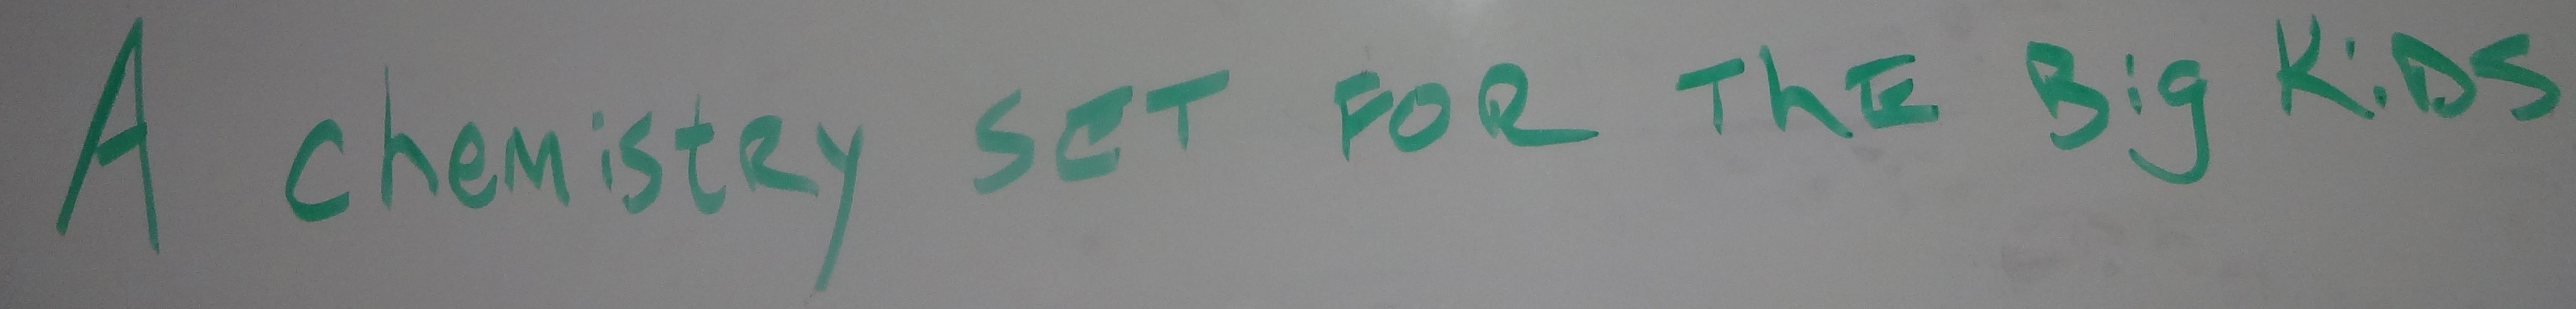 A chemistRy SET FOR ThE Big KiDS